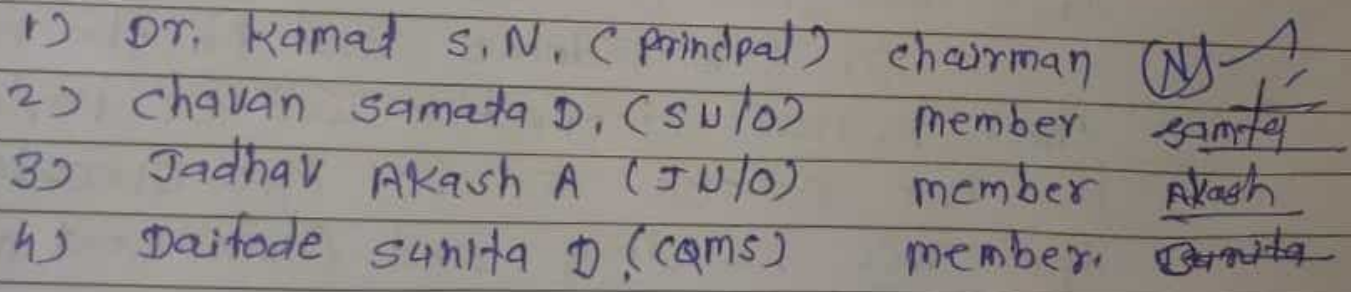 1) Dr. Kamat S. N. (Principal) chairman
2) Chavan Samata D. (SU/O) member Samta
3) Jadhav Akash A (JU/O) member Akash
4) Daitode Sunita D. (CQMS) member. Sunita